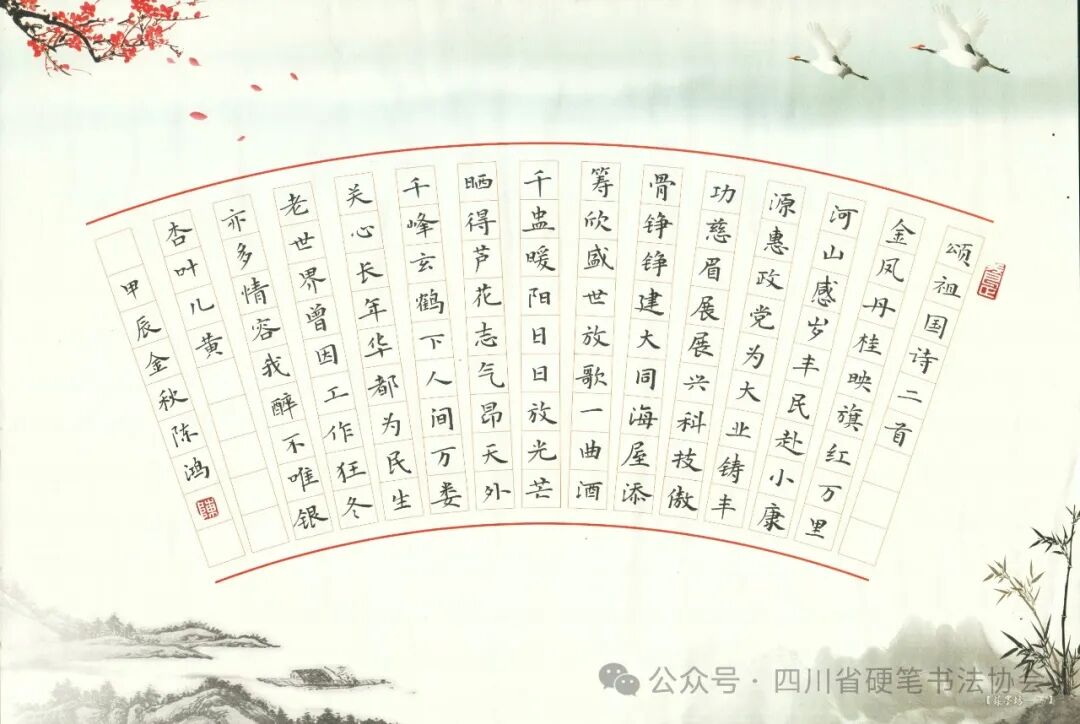 颂祖国诗二首
金凤丹桂映旗红万里
河山感岁丰民赴小康
源惠政党为大业铸丰
功慈眉展展兴科技傲
骨铮铮建大同海屋添
筹欣盛世放歌一曲酒
千盅暖阳日日放光芒
晒得芦花志气昂天外
千峰玄鹤下人间万娄
关心长年华都为民生
老世界曾因工作狂冬
亦多情容我醉不唯银
杏叶儿黄
甲辰金秋陈鸿
公众号·四川省硬笔书法协会